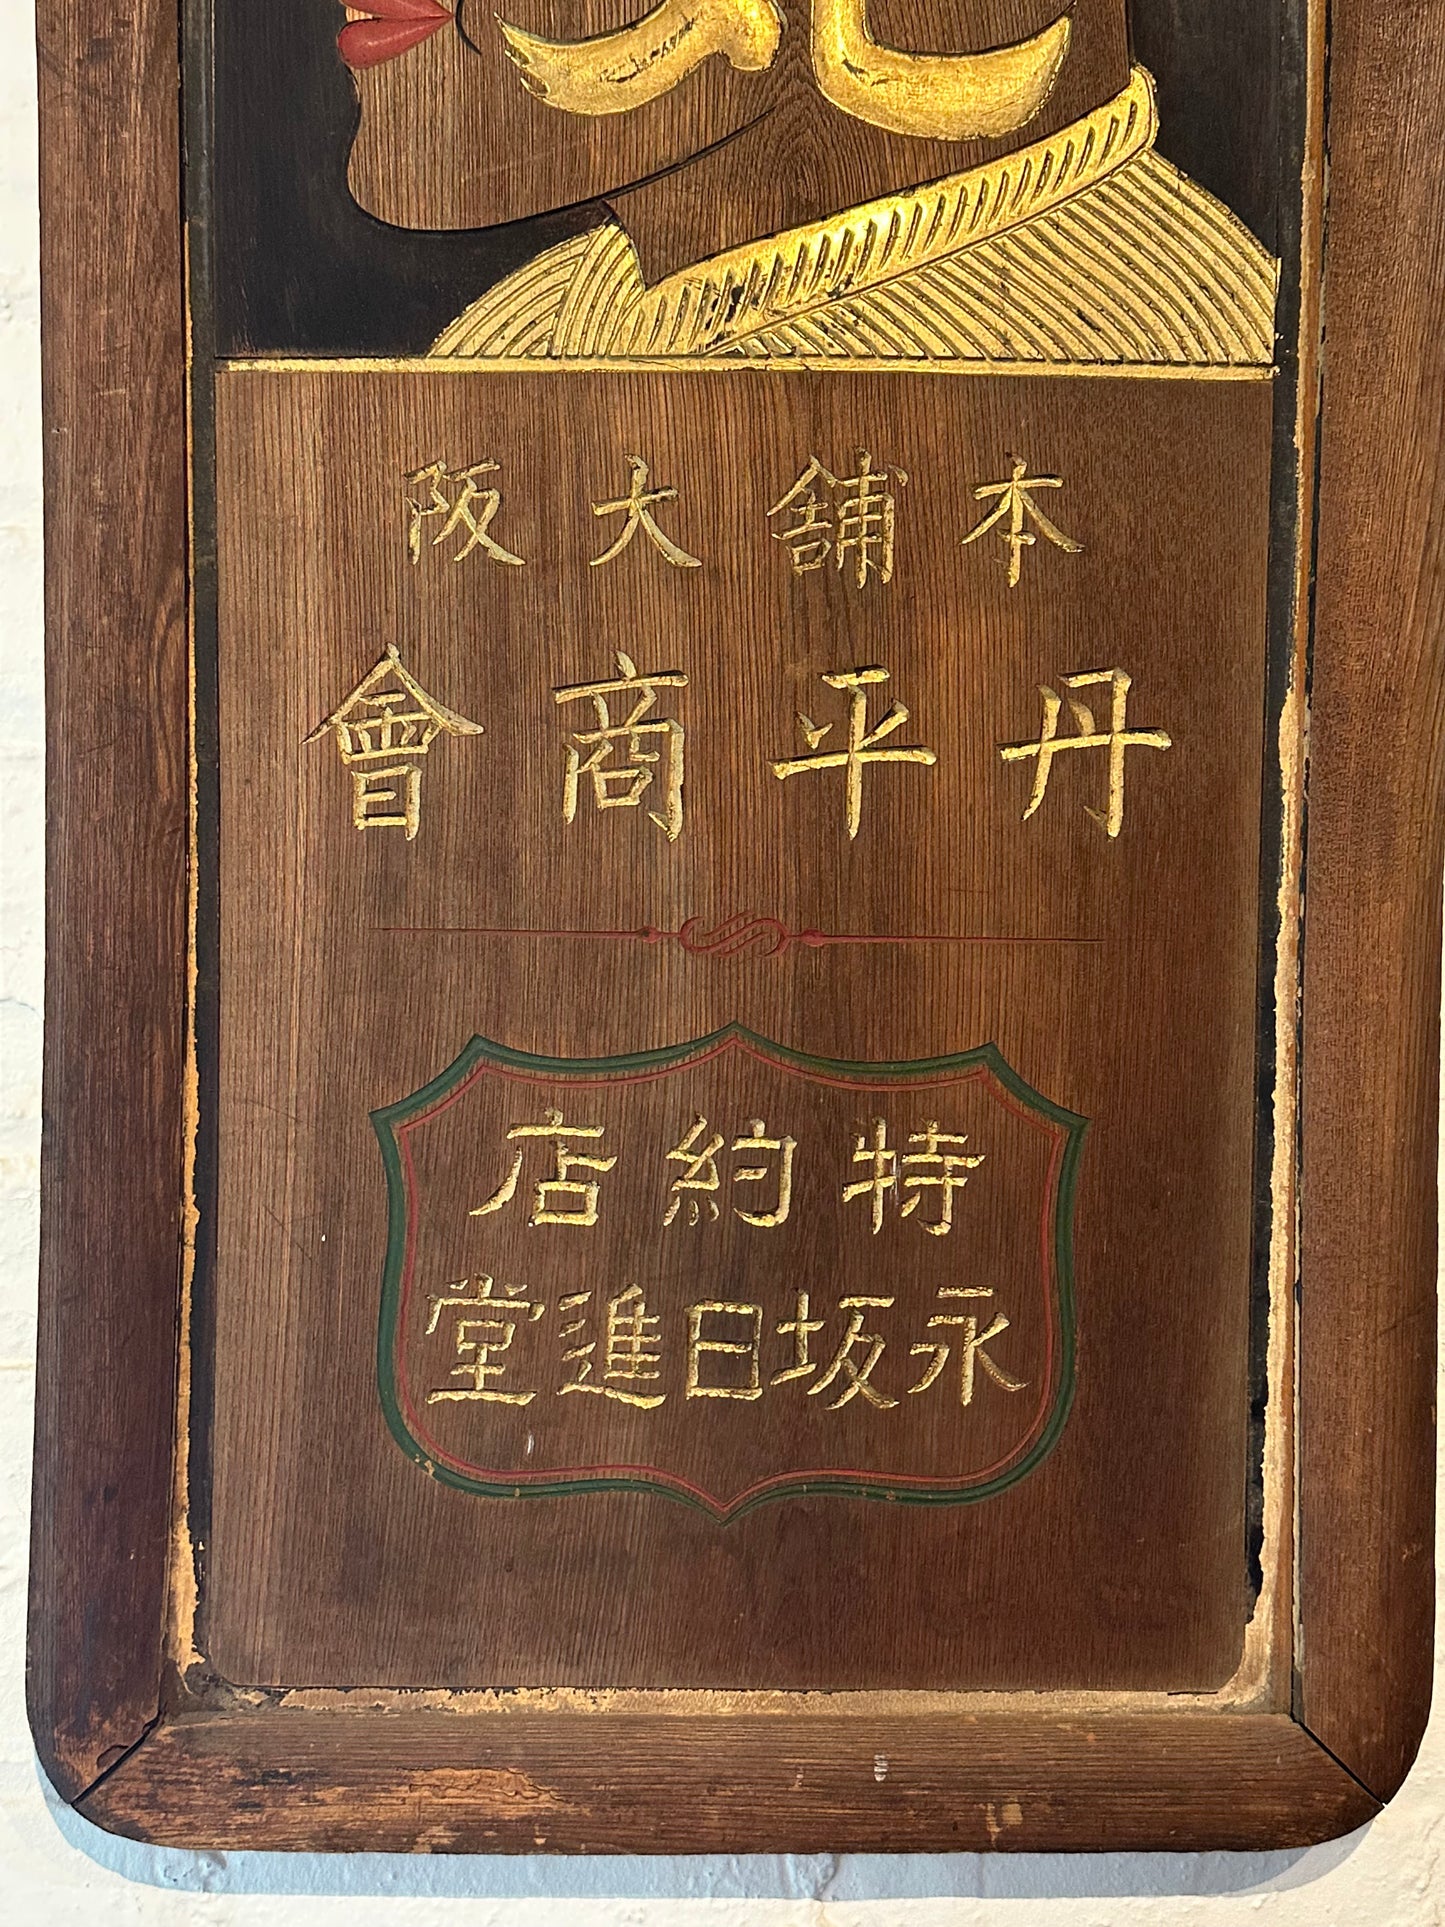 本舗大阪
丹平商會
特約店
永坂日進堂